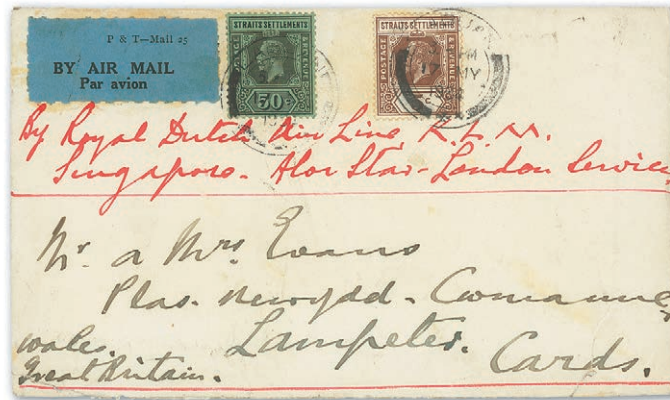 P & T—Mail 25
BY AIR MAIL
Par avion
STRAITS SETTLEMENTS
POSTAGE & REVENUE
30c
STRAITS SETTLEMENTS
POSTAGE & REVENUE
By Royal Dutch Air Line, K.L.M.
Singapore - Alor Star - London Service
Mr. a Mrs. Evans
Plas. Newydd - Cwmanne
Lampeter.
Cards.
Wales.
Great Britain.